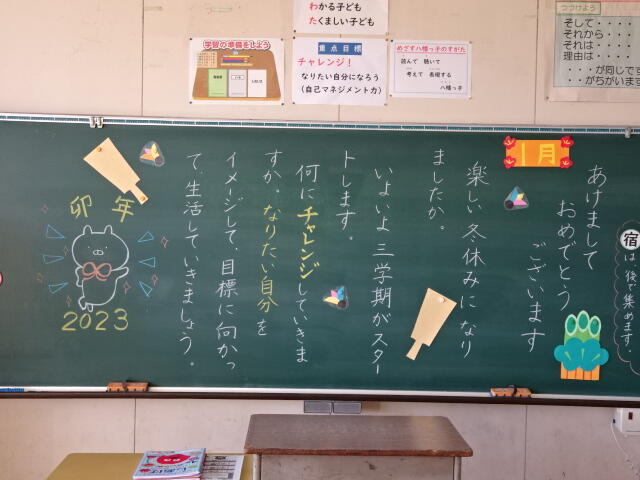 わかる子ども
たくましい子ども
学習の準備をしよう
重点目標
チャレンジ!
なりたい自分になろう
(自己マネジメント力)
めざす八幡っ子のすがた
読んで 聴いて
考えて 表現する
八幡っ子
つけつけよう
そして・・・・・
それから・・・・
それは・・・・・
理由は・・・・・
・・・が同じです
・・・がちがいます
1月
あけまして
おめでとう
ございます
楽しい冬休みになり
ましたか。
いよいよ三学期がスター
トします。
何にチャレンジしていきま
すか。なりたい自分を
イメージして、目標に向かっ
て、生活していきましょう。
卯年
2023
宿は後で集めます。